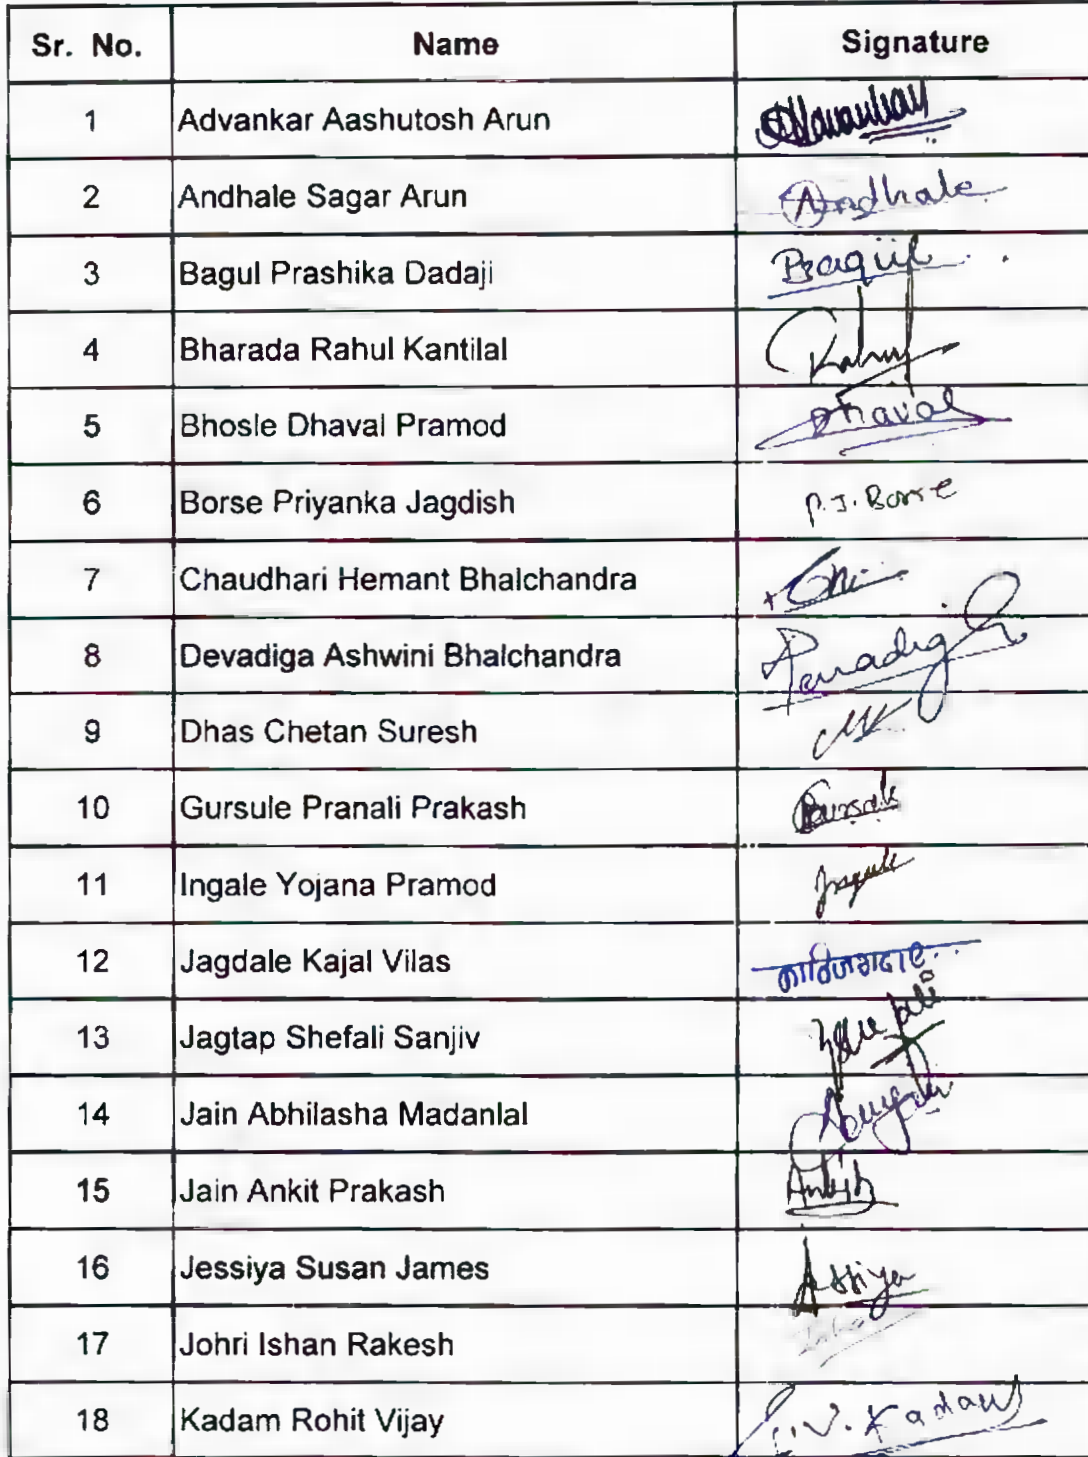 Sr. No. Name Signature
1 Advankar Aashutosh Arun
2 Andhale Sagar Arun Andhale
3 Bagul Prashika Dadaji Bagul
4 Bharada Rahul Kantilal Rahul
5 Bhosle Dhaval Pramod Dhaval
6 Borse Priyanka Jagdish P.J. Borse
7 Chaudhari Hemant Bhalchandra
8 Devadiga Ashwini Bhalchandra
9 Dhas Chetan Suresh
10 Gursule Pranali Prakash
11 Ingale Yojana Pramod
12 Jagdale Kajal Vilas
13 Jagtap Shefali Sanjiv
14 Jain Abhilasha Madanlal
15 Jain Ankit Prakash
16 Jessiya Susan James
17 Johri Ishan Rakesh
18 Kadam Rohit Vijay